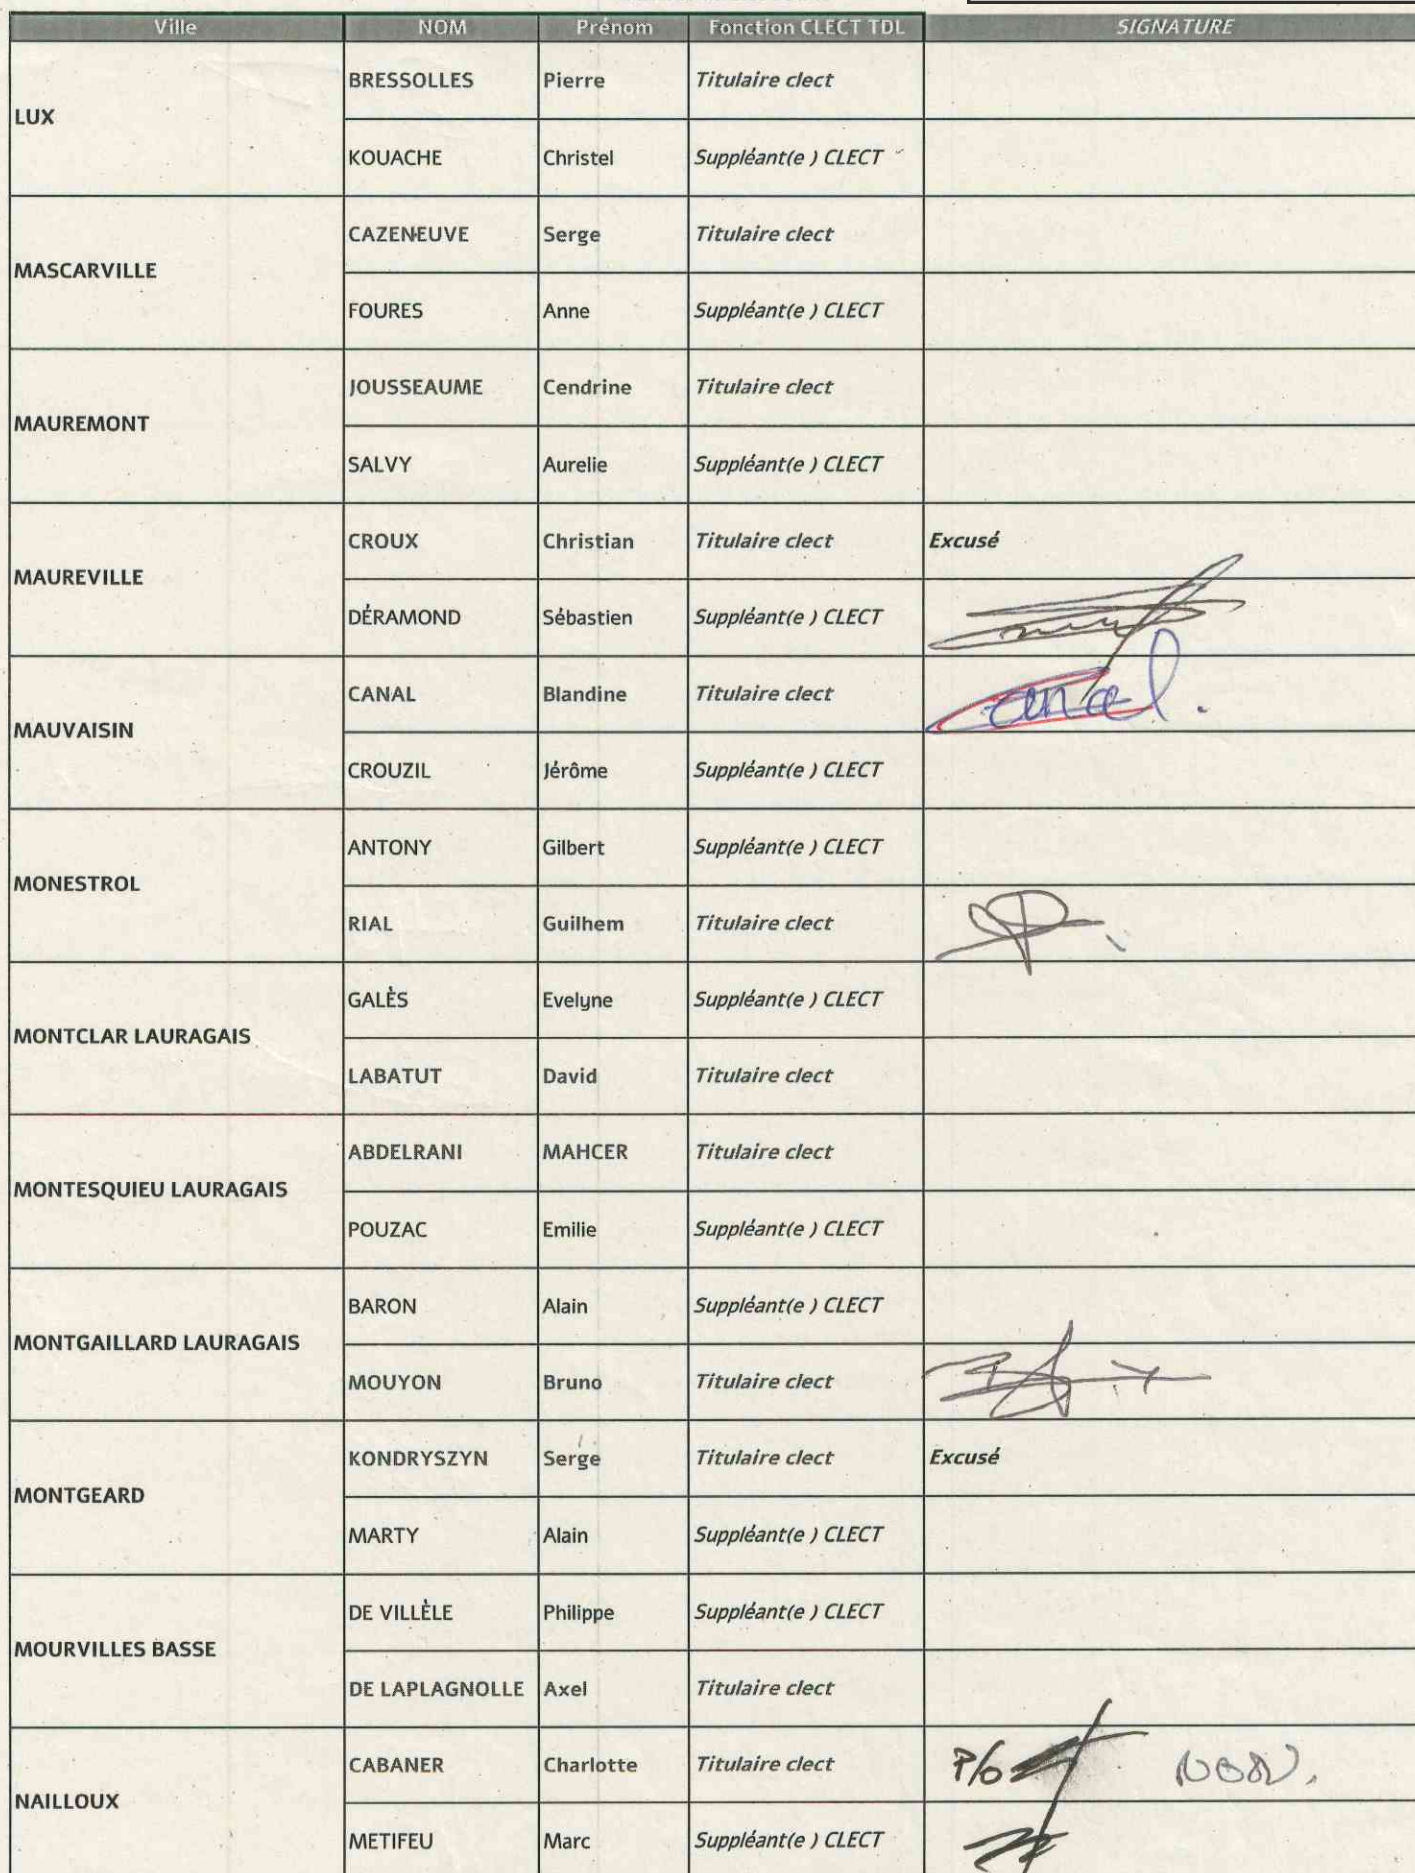 Ville NOM Prénom Fonction CLECT TDL SIGNATURE
LUX
BRESSOLLES Pierre Titulaire clect
KOUACHE Christel Suppléant(e ) CLECT
MASCARVILLE
CAZENEUVE Serge Titulaire clect
FOURES Anne Suppléant(e ) CLECT
MAUREMONT
JOUSSEAUME Cendrine Titulaire clect
SALVY Aurelie Suppléant(e ) CLECT
MAUREVILLE
CROUX Christian Titulaire clect Excusé
DÉRAMOND Sébastien Suppléant(e ) CLECT
MAUVAISIN
CANAL Blandine Titulaire clect Canal.
CROUZIL Jérôme Suppléant(e ) CLECT
MONESTROL
ANTONY Gilbert Suppléant(e ) CLECT
RIAL Guilhem Titulaire clect
MONTCLAR LAURAGAIS
GALÈS Evelyne Suppléant(e ) CLECT
LABATUT David Titulaire clect
MONTESQUIEU LAURAGAIS
ABDELRANI MAHCER Titulaire clect
POUZAC Emilie Suppléant(e ) CLECT
MONTGAILLARD LAURAGAIS
BARON Alain Suppléant(e ) CLECT
MOUYON Bruno Titulaire clect
MONTGEARD
KONDRYSZYN Serge Titulaire clect Excusé
MARTY Alain Suppléant(e ) CLECT
MOURVILLES BASSE
DE VILLÈLE Philippe Suppléant(e ) CLECT
DE LAPLAGNOLLE Axel Titulaire clect
NAILLOUX
CABANER Charlotte Titulaire clect P/o
METIFEU Marc Suppléant(e ) CLECT